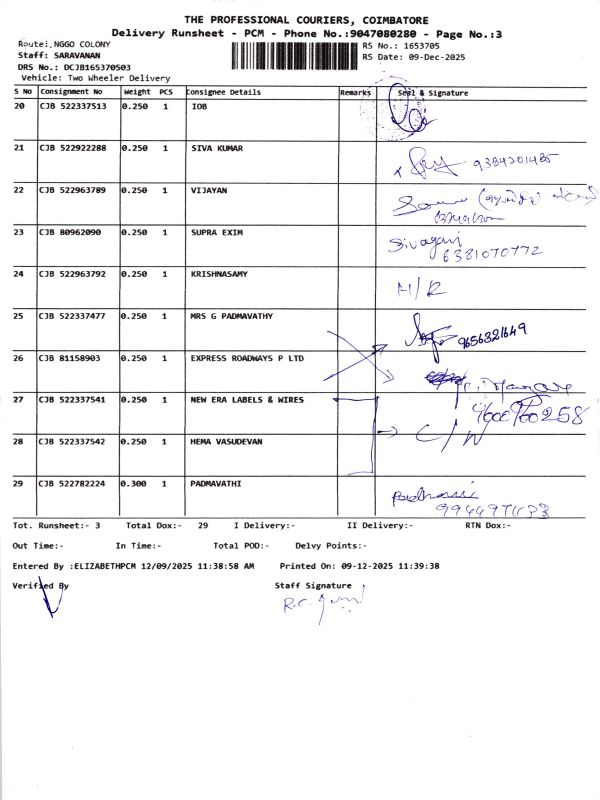 THE PROFESSIONAL COURIERS, COIMBATORE
Delivery Runsheet - PCM - Phone No.:9047080280 - Page No.:3
Route: NGGO COLONY
RS No.: 1653705
Staff: SARAVANAN
RS Date: 09-Dec-2025
DRS No.: DCJB165370503
Vehicle: Two Wheeler Delivery
S No Consignment No Weight PCS Consignee Details Remarks Seal & Signature
20 CJB 522337513 0.250 1 IOB
21 CJB 522922288 0.250 1 SIVA KUMAR 9384201485
22 CJB 522963789 0.250 1 VIJAYAN
23 CJB 80962090 0.250 1 SUPRA EXIM Sivagami
6381070772
24 CJB 522963792 0.250 1 KRISHNASAMY H/R
25 CJB 522337477 0.250 1 MRS G PADMAVATHY 9656321649
26 CJB 81158903 0.250 1 EXPRESS ROADWAYS P LTD
27 CJB 522337541 0.250 1 NEW ERA LABELS & WIRES
28 CJB 522337542 0.250 1 HEMA VASUDEVAN C/N
29 CJB 522782224 0.300 1 PADMAVATHI
Tot. Runsheet:- 3 Total Dox:- 29 I Delivery:- II Delivery:- RTN Dox:-
Out Time:- In Time:- Total POD:- Delvy Points:-
Entered By :ELIZABETHPCM 12/09/2025 11:38:58 AM Printed On: 09-12-2025 11:39:38
Verified By Staff Signature